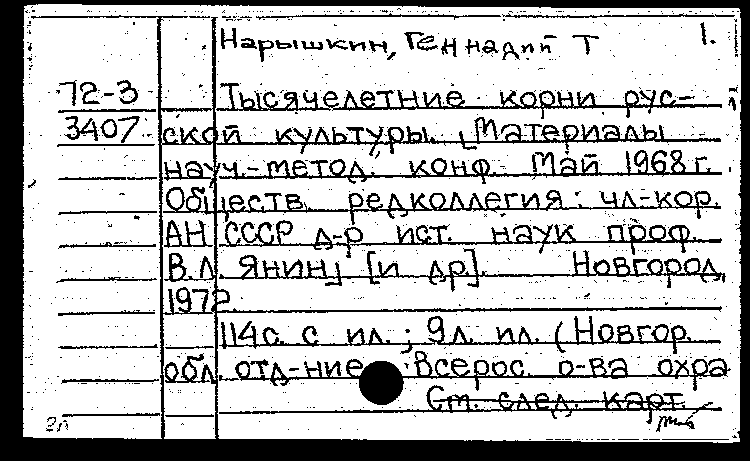 Нарышкин, Геннадий Т 1.
72-3 Тысячелетние корни рус-
3407 ской культуры. [Материалы
науч.-метод. конф. Май 1968 г.
Обществ. редколлегия: чл-кор.
АН СССР д-р ист. наук проф.
В.Л. Янин] [и др]. Новгород,
1972.
114 с. с ил.; 9 л. ил. (Новгор.
обл. отд-ние Всерос. о-ва охра
См. след. карт.